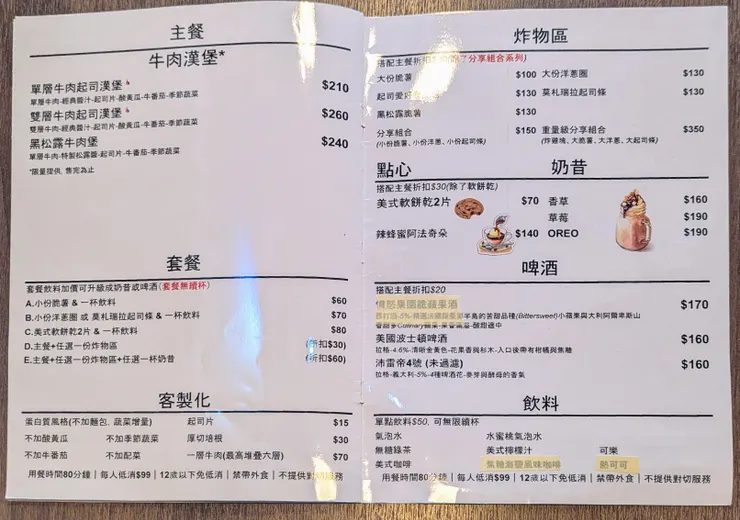 主餐
牛肉漢堡*
單層牛肉起司漢堡 $210
單層牛肉-經典醬汁-起司片-酸黃瓜-牛番茄-季節蔬菜
雙層牛肉起司漢堡 $260
雙層牛肉-經典醬汁-起司片-酸黃瓜-牛番茄-季節蔬菜
黑松露牛肉堡 $240
單層牛肉-特製松露醬-起司片-牛番茄-季節蔬菜
*限量提供, 售完為止
套餐
套餐飲料加價可升級成奶昔或啤酒(套餐無續杯)
A.小份脆薯 & 一杯飲料 $60
B.小份洋蔥圈 或 莫札瑞拉起司條 & 一杯飲料 $70
C.美式軟餅乾2片 & 一杯飲料 $80
D.主餐+任選一份炸物區 (折扣$30)
E.主餐+任選一份炸物區+任選一杯奶昔 (折扣$60)
客製化
蛋白質風格(不加麵包、蔬菜增量) 起司片 $15
不加酸黃瓜 不加季節蔬菜 厚切培根 $30
不加牛番茄 不加配菜 一層牛肉(最高堆疊六層) $70
用餐時間80分鐘｜每人低消$99｜12歲以下免低消｜禁帶外食｜不提供對切服務
炸物區
搭配主餐折扣 除了分享組合系列)
大份脆薯 $100 大份洋蔥圈 $130
起司愛好 $130 莫札瑞拉起司條 $130
黑松露脆薯 $130
分享組合 $150 重量級分享組合 $350
(小份脆薯、小份洋蔥、小份起司條) (炸雞塊、大脆薯、大洋蔥、大起司條)
點心 奶昔
搭配主餐折扣$30(除了軟餅乾)
美式軟餅乾2片 $70 香草 $160
草莓 $190
辣蜂蜜阿法奇朵 $140 OREO $190
啤酒
搭配主餐折扣$20
憤怒果園脆蘋果酒 $170
半島的苦甜品種(Bittersweet)小蘋果與大利阿爾卑斯山
Culinary蘋果-果香滿溢-酸甜適中
美國波士頓啤酒 $160
拉格-4.6%-清晰金黃色-花果香與杉木-入口後帶有柑橘與焦糖
沛雷帝4號 (未過濾) $160
拉格-義大利-5%-4種啤酒花-麥芽與酵母的香氣
飲料
單點飲料$50, 可無限續杯
氣泡水 水蜜桃氣泡水
無糖綠茶 美式檸檬汁 可樂
美式咖啡 焦糖海鹽風味咖啡 熱可可
用餐時間80分鐘｜每人低消$99｜12歲以下免低消｜禁帶外食｜不提供對切服務